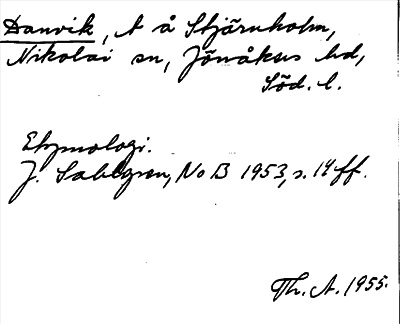 Danvik, t å Stjärnholm,
Nikolai sn, Jönåkers hd,
Söd. l.
Etymologi.
J. Sahlgren, NoB 1953, s. 14 ff.
Th. A. 1955.